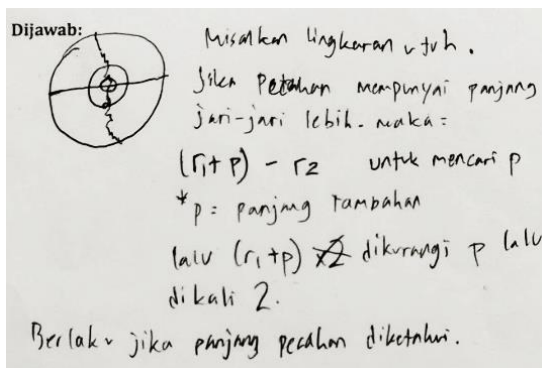 Dijawab:
Misalkan lingkaran utuh.
Jika Petahan mempunyai panjang
jari-jari lebih. maka =
(r₁+ p) - r₂ untuk mencari p
*p = panjang tambahan
lalu (r₁+p) dikurangi p lalu
dikali 2.
Berlaku jika panjang pecahan diketahui.